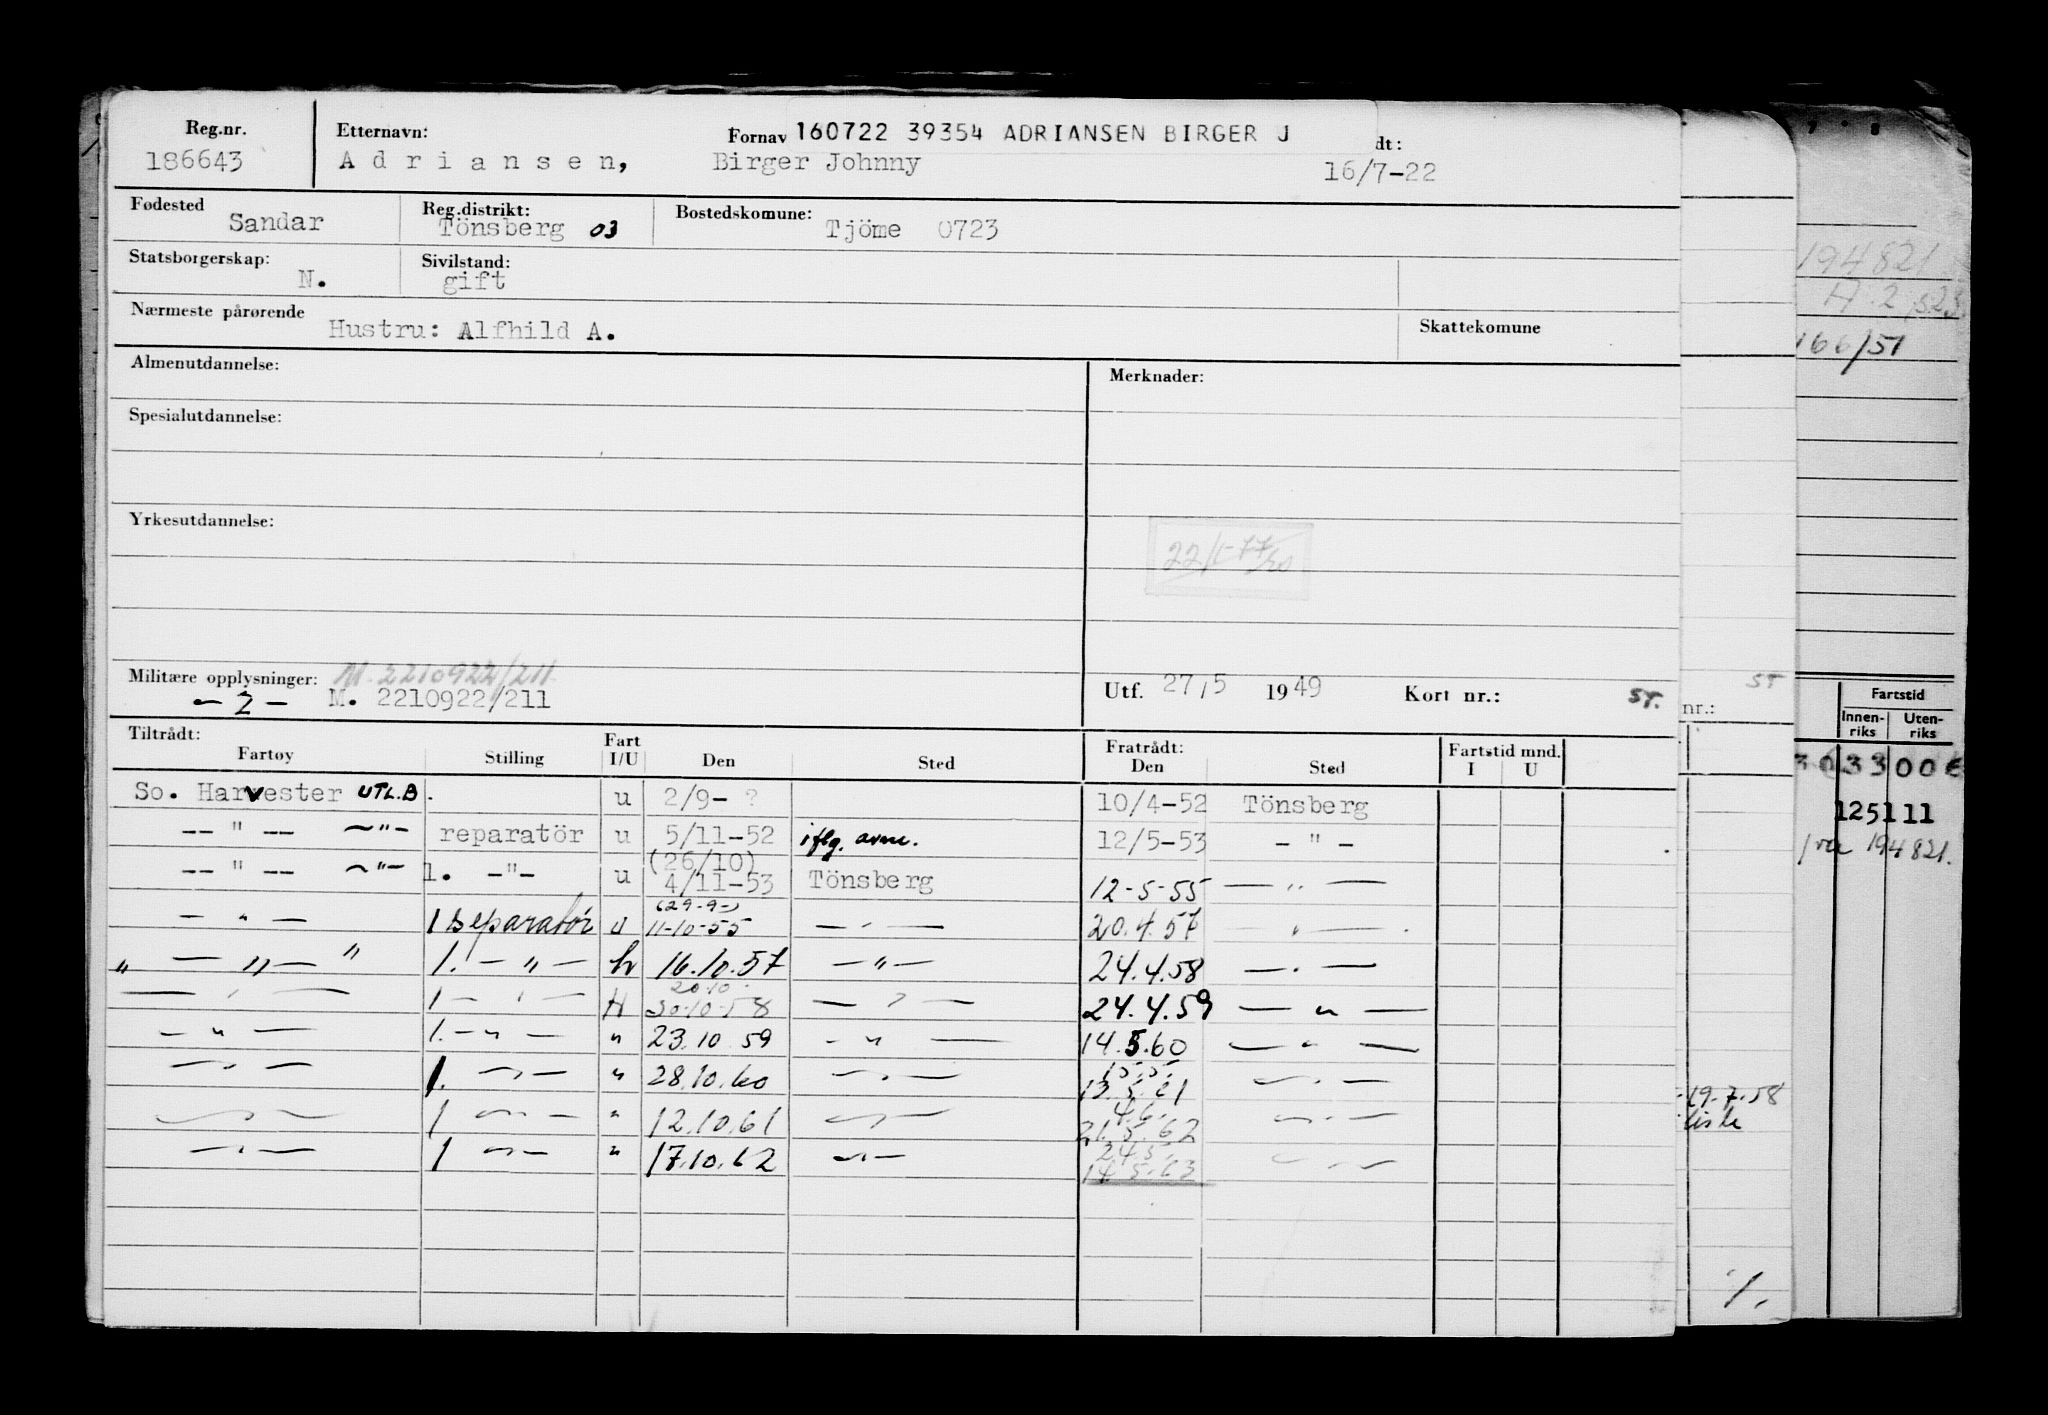 Reg.nr. Etternavn: Fornav 160722 39354 ADRIANSEN BIRGER J dt:
186643 Adriansen, Birger Johnny 16/7-22
Fødested Sandar Reg.distrikt: Tönsberg 03 Bostedskomune: Tjöme 0723
Statsborgerskap: N. Sivilstand: gift
194821
Nærmeste pårørende Hustru: Alfhild A. Skattekomune
166/51
Almenutdannelse: Merknader:
Spesialutdannelse:
Yrkesutdannelse:
22/1-77
Militære opplysninger: M. 2210922/211
- 2 - M. 2210922/211 Utf. 27/5 1949 Kort nr.: ST. nr.: ST
Tiltrådt: Fratrådt: Fartstid mnd. Fartstid
Fartøy Stilling Fart I/U Den Sted Den Sted I U Innen-riks Uten-riks
So. Harvester UTL.B. u 2/9- ? 10/4-52 Tönsberg
-- " -- -"- reparatör u 5/11-52 iflg. avm. 12/5-53 - " -
125111
194821.
-- " -- -"- 1. -"- u (26/10) 4/11-53 Tönsberg 12-5-55 - " -
- " - 1 separatör u (29-9-) 11-10-55 - " - 20.4.57 - " -
" - " - " 1. - " - 16.10.57 - " - 24.4.58 - " -
- " - 1 - " - H 20.10. 30-10-58 - " - 24.4.59 - " -
- " - 1. - " - " 23.10.59 - " - 14.5.60 - " -
- " - 1. - " - " 28.10.60 - " - 15.5. 13.5.61 - " -
19.7.58
- " - 1 - " - " 12.10.61 - " - 4.6. 21.5.62 - " -
- " - 1 - " - " 17.10.62 - " - 24.5. 14.5.63 - " -